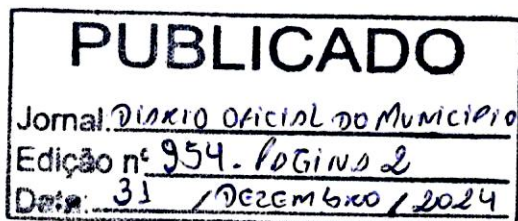 PUBLICADO
Jornal: Diário Oficial do Município
Edição nº 954. Pagina 2
Data: 31 / Dezembro / 2024